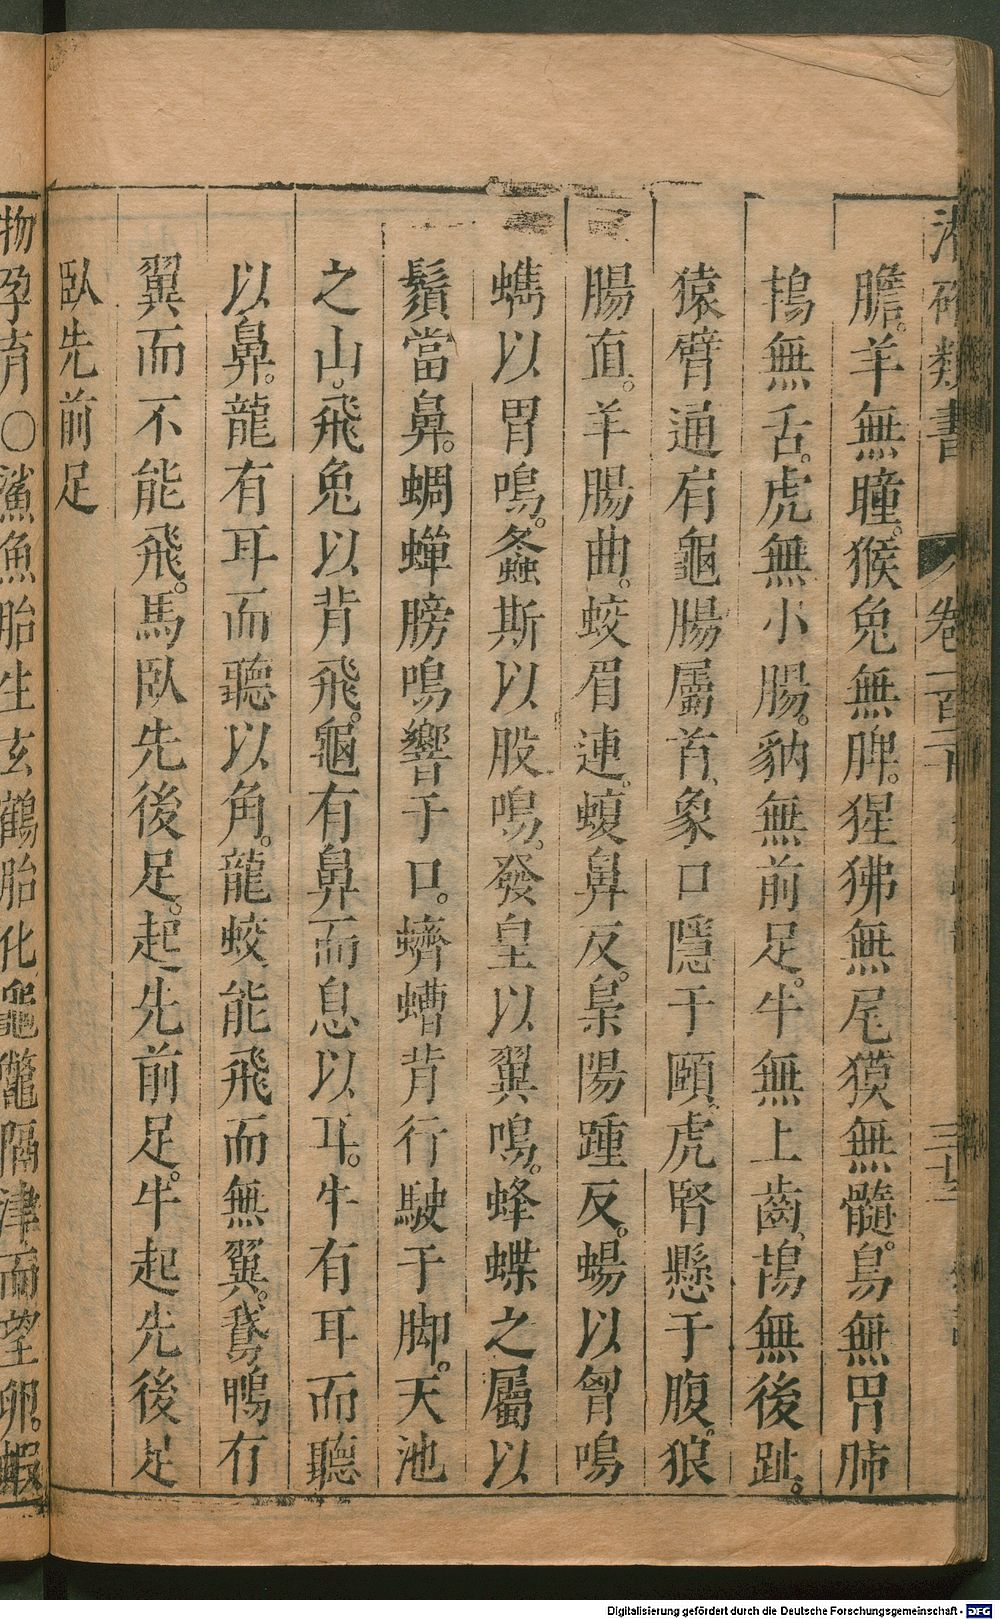 卷一百二十
膽。羊無瞳。猴兔無脾。猩狒無尾獏無髓。鳥無胃肺
鴇無舌。虎無小腸。豽無前足。牛無上齒鴇無後趾。
猿臂通肩龜腸屬首、象口隱于頤、虎腎懸于腹。狼
腸直。羊腸曲。蛟眉連。蝮鼻反。梟陽踵反。蜴以胷鳴
蠵以胃鳴。螽斯以股鳴。發皇以翼鳴。蜂蝶之屬以
鬚當鼻。蜩蟬膀鳴響于口。蠐螬背行駛于脚。天池
之山。飛兔以背飛。龜有鼻而息以耳。牛有耳而聽
以鼻。龍有耳而聽以角。龍蛟能飛而無翼。鵞鴨有
翼而不能飛。馬臥先後足。起先前足。牛起先後足
臥先前足
物孕育○鯊魚胎生玄鶴胎化龜鼈隔津而望卵。蝦
Digitalisierung gefördert durch die Deutsche Forschungsgemeinschaft - DFG